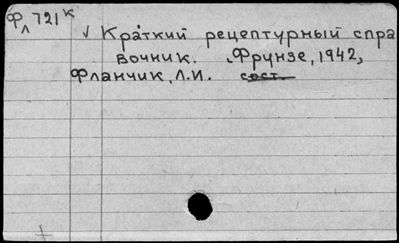 Фл 721к
√ Краткий рецептурный спра
вочник. Фрунзе, 1942,
Фланчик, Л.И. сост.